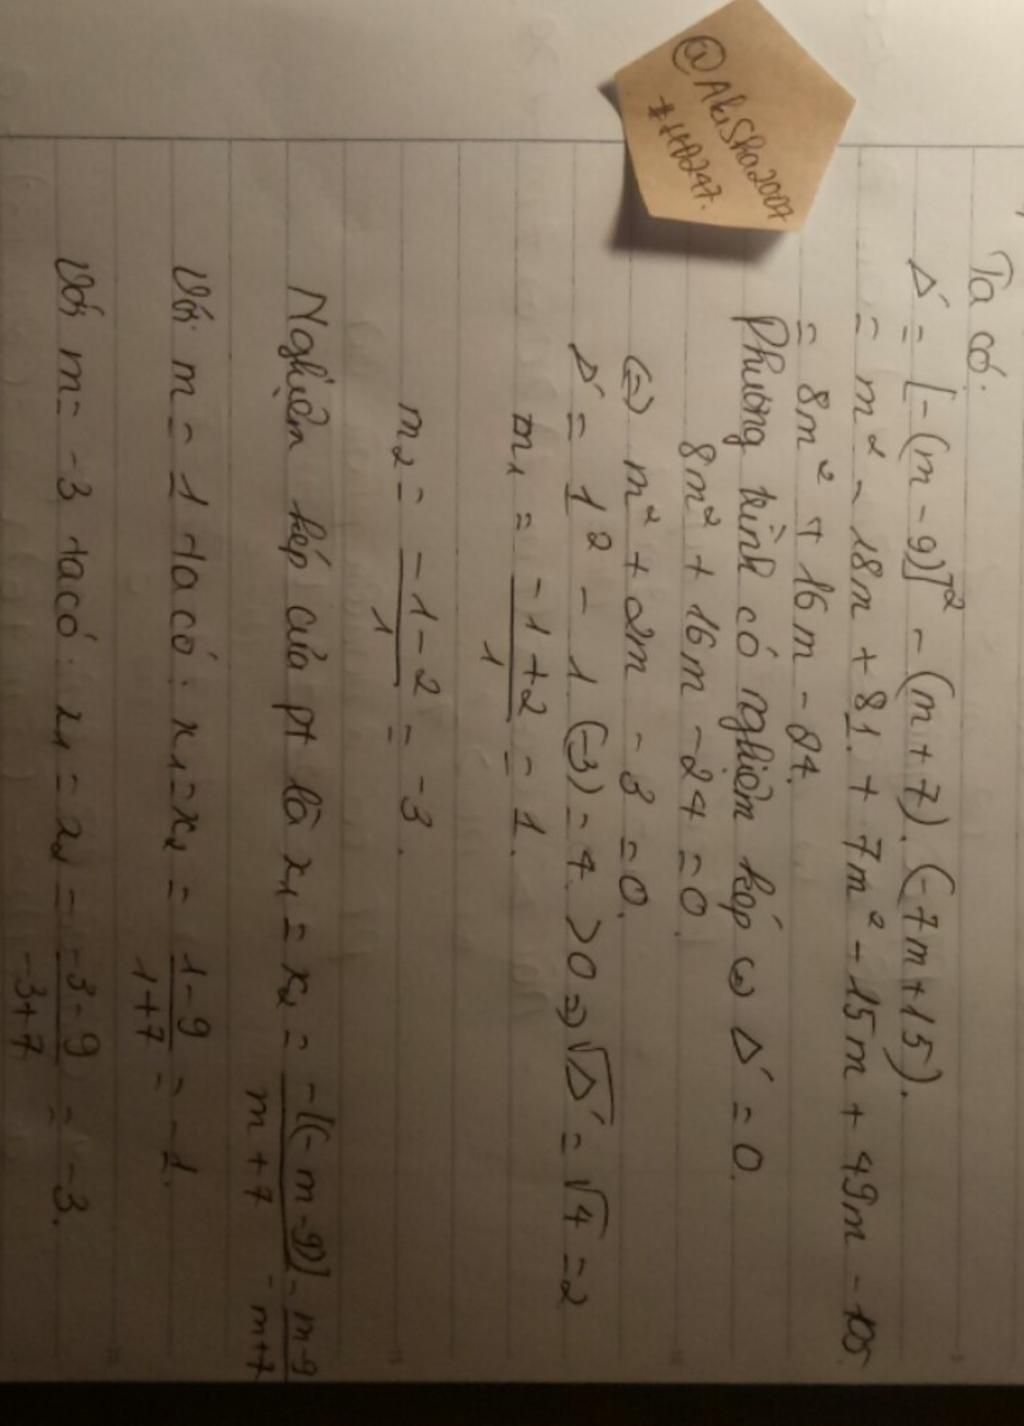 @AkiSha2007
#HĐ247.
Ta có:
Δ' = [-(m-9)]² - (m+7).(-7m+15).
= m² - 18m + 81 + 7m² - 15m + 49m - 105
= 8m² + 16m - 24.
Phương trình có nghiệm kép ⇔ Δ' = 0.
8m² + 16m - 24 = 0.
(=) m² + 2m - 3 = 0.
Δ' = 1² - 1.(-3) = 4 > 0 => √Δ' = √4 = 2
m₁ = (-1+2)/1 = 1.
m₂ = (-1-2)/1 = -3.
Nghiệm kép của pt là x₁ = x₂ = -[(-m-9)]/(m+7) = (m-9)/(m+7)
Với m = 1 ta có: x₁ = x₂ = (1-9)/(1+7) = -1.
Với m = -3 ta có: x₁ = x₂ = (-3-9)/(-3+7) = -3.